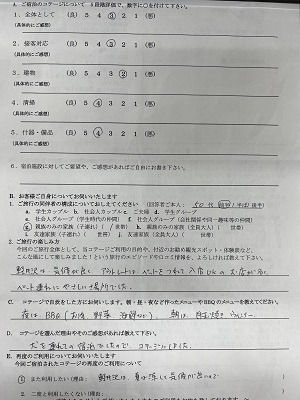 A. ご宿泊のコテージについて 5段階評価で、数字に○を付けて下さい。
1. 全体として (良) 5 4 3 2 1 (悪)
(具体的にご感想)
2. 接客対応 (良) 5 4 3 2 1 (悪)
(具体的にご感想)
3. 建物 (良) 5 4 3 2 1 (悪)
(具体的にご感想)
4. 清掃 (良) 5 4 3 2 1 (悪)
(具体的にご感想)
5. 什器・備品 (良) 5 4 3 2 1 (悪)
(具体的にご感想)
6. 宿泊施設に対してご要望や、ご感想があればご自由にお書き下さい。
B. お客様ご自身についてお伺いいたします
1. ご旅行の同伴者の構成についてお答えください (回答者ご本人: 50代
a. 学生カップル b. 社会人カップル c. ご夫婦 d. 学生グループ
e. 社会人グループ(学生時代の仲間) f. 社会人グループ(会社関係や同一趣味等の仲間)
g. 親族のみの家族(子連れ)( / 世帯) h. 親族のみの家族(全員大人)( 世帯)
i. 友達家族(子連れ)( 世帯) j. 友達家族(全員大人)( 世帯)
2. ご旅行の楽しみ方
今回のご旅行全体として、当コテージご利用の目的や、付近のお勧め観光スポット・体験談など、
こんな風にして楽しみました！という旅行のエピソードや口コミ情報を、よろしければ教えて下さい。
軽井沢は気候が良く アウトレットはペットをつれて入店OKのお店が多く、
ペット連れにやさしい場所でした。
C. コテージで自炊をした方にお伺いします。朝・昼・夜など作ったメニューやBBQのメニューを教えてください。
夜はBBQ(お肉 野菜 海鮮など) 朝は、
D. コテージを選んだ理由やそのご感想があれば教えて下さい。
犬を連れての宿泊でしたので コテージにしました。
E. 再度のご利用についてお伺いします
今回ご宿泊されたコテージの再度のご利用について
1 また利用したい(理由: 軽井沢は、夏は涼しく気候が良いので
2. 二度と利用したくない(理由: